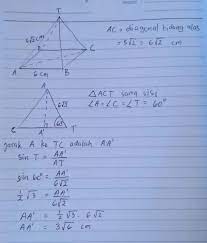 T
6√2 cm
D
C
A
6 cm
B
AC = diagonal bidang alas
= s√2 = 6√2 cm
A
6√2
60°
C
A'
T
△ACT sama sisi
∠A = ∠C = ∠T = 60°
jarak A ke TC adalah AA'
sin T = AA'/AT
sin 60° = AA'/6√2
1/2 √3 = AA'/6√2
AA' = 1/2 √3 · 6√2
AA' = 3√6 cm